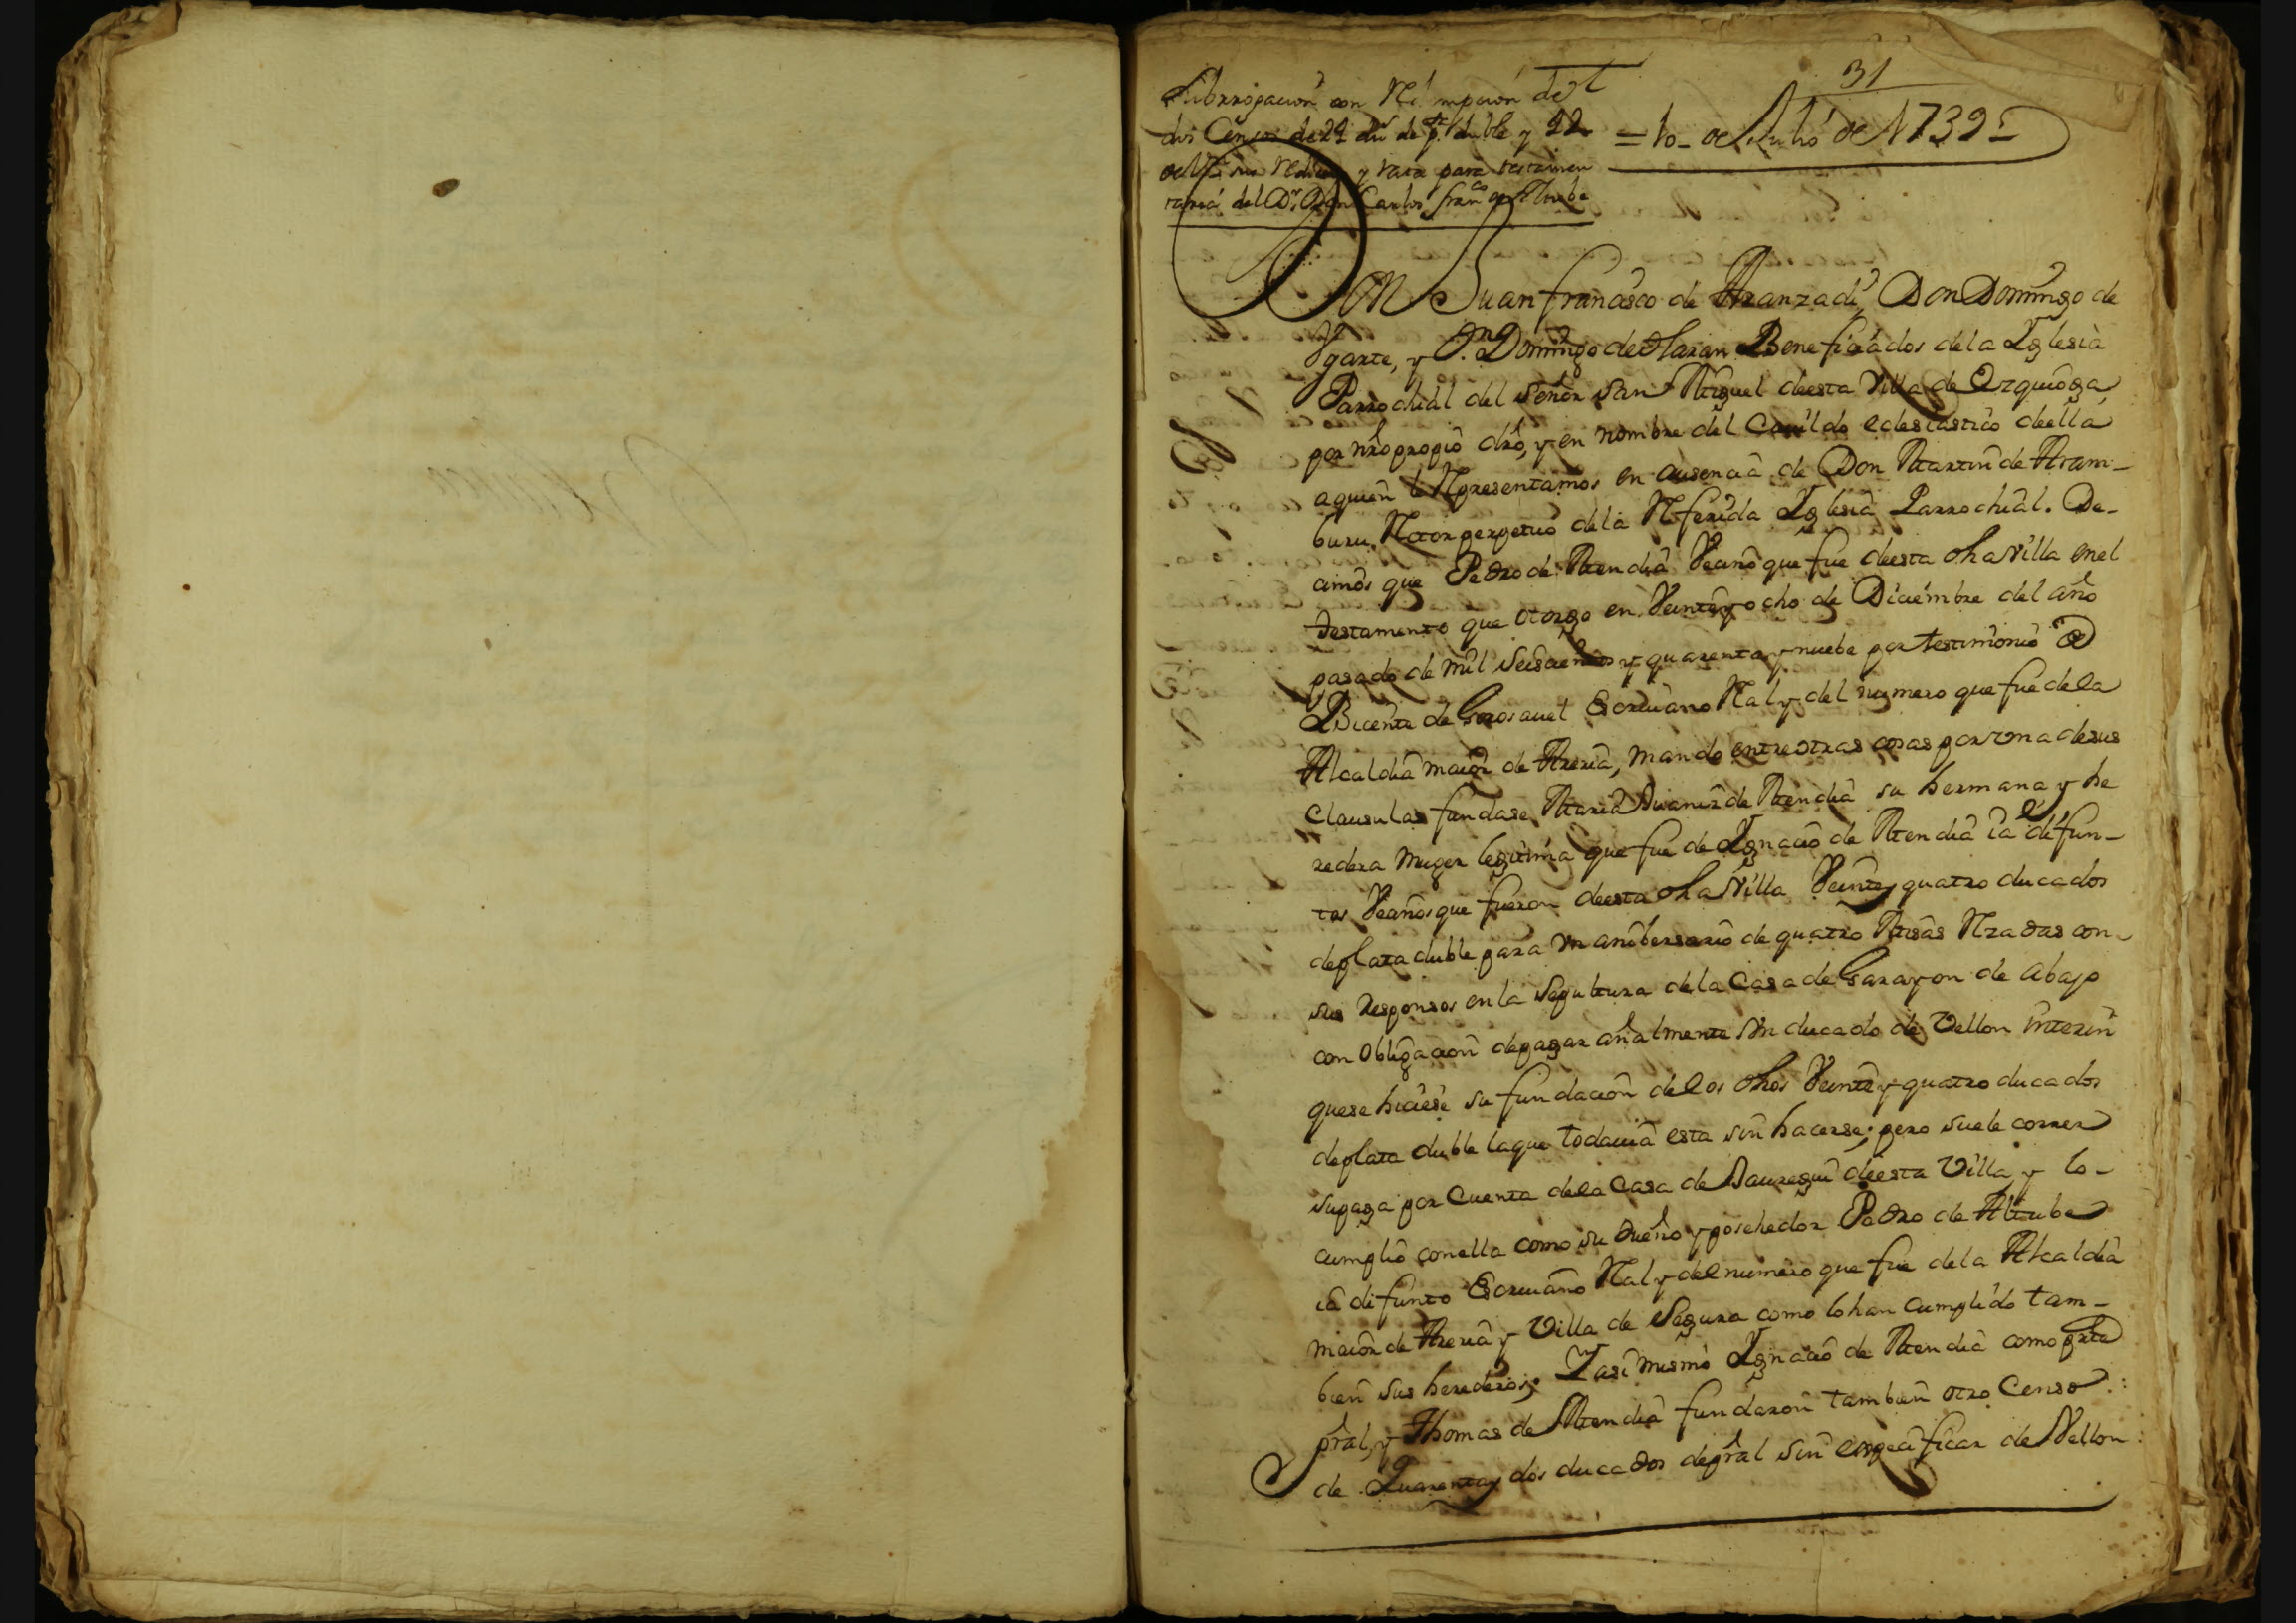 31
Subrrogacion con Redempcion de
dos Censos de 24 du.s de p.ta duble y 22
de Vn. sus reditos y rata para testamen
taria del Dr. Don Carlos fran.co de Altube
= 10 de Julio de 1739 =
DON Juan francisco de Aranzadi, Don Domingo de
Vgarte, y Dn. Domingo de Olaran Beneficiados dela Yglesia
Parrochial del señor san Miguel deesta Villa de Ezquioga
por nro propio dro, y en nombre del Cavildo eclesiastico deella
aquien le Representamos en ausencia de Don Martin de Aram-
buru Retor perpetuo dela Referida Yglesia Parrochial. De-
cimos que Pedro de Mendia Vecino que fue deesta dha Villa enel
testamento que otorgo en Veinte y ocho de Diciembre del año
pasado de mil Seiscientos y quarenta y nuebe por testimonio de
Bicente de Gorosauel Escriuano Real y del numero que fue dela
Alcaldia maior de Areria, mando entre otras cosas por vna desus
Clausulas fundase Maria Juaniz de Mendia su hermana y he
redera muger legitima que fue de Ygnacio de Mendia ia difun-
tos Vecinos que fueron deesta dha Villa Veinte y quatro ducados
deplata duble para vn anibersario de quatro Misas Rzadas con
sus Responsos enla Sepultura dela Casa de Garayon de abajo
con obligacion depagar añalmente Vn ducado de Vellon interin
quese hiciese su fundacion delos dhos Veinte y quatro ducados
deplata duble laque todauia esta sin hacerse; pero suele correr
supaga por Cuenta dela Casa de Jauregui deesta Villa, y lo-
cumplio conella como su Dueño y posehedor Pedro de Altube
ia difunto Escriuano Real y delnumero que fue dela Alcaldia
maior de Areria y Villa de Segura como lohan Cumplido tam-
bien sus herederos; Y asimismo Ygnacio de Mendia como
pral, y Thomas de Mendia fundaron tambien otro Censo
de Quarenta y dos ducados depral sin especificar de Vellon